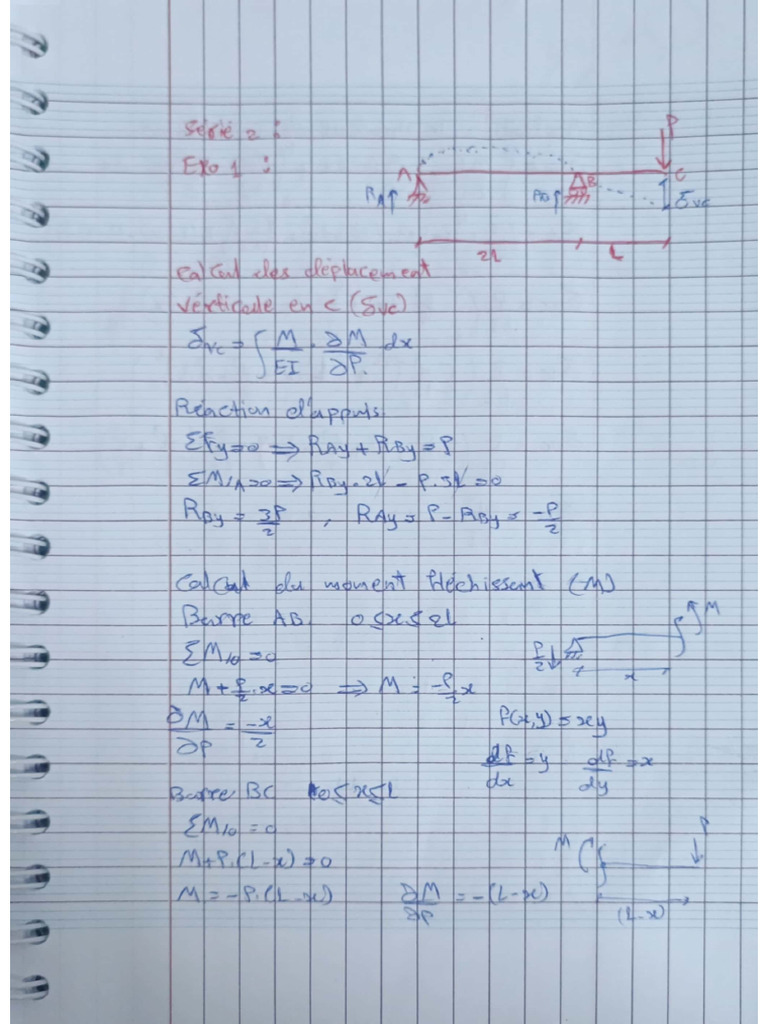 Série 2 :
Exo 1 :
A B C P
RA↑ RB↑ δvc
2L L
Calcul des déplacement
vérticale en c (δvc)
δvc = ∫ M/EI . ∂M/∂P. dx
Réaction d'appuis
ΣFy=0 ⟹ RAy + RBy = P
ΣM/A=0 ⟹ RBy.2L - P.3L = 0
RBy = 3P/2 , RAy = P - RBy = -P/2
Calcul du moment fléchissant (M)
Barre AB. 0 ≤ x ≤ 2L
ΣM/0 = 0
P/2 ↓ x M
M + P/2 . x = 0 ⟹ M = -P/2 x
∂M/∂P = -x/2
f(x,y) = xy
df/dx = y df/dy = x
Barre BC 0 ≤ x ≤ L
ΣM/0 = 0
M + P.(L-x) = 0
M P
M = -P.(L-x) ∂M/∂P = -(L-x)
(L-x)